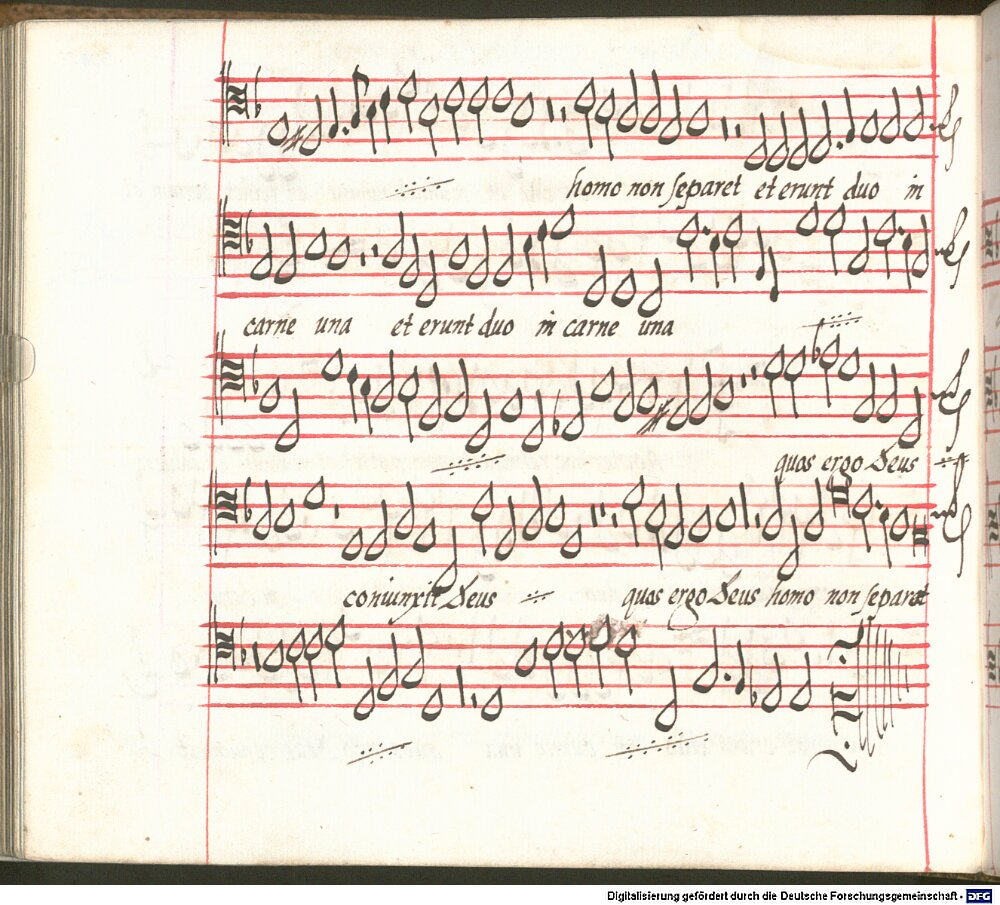 homo non separet et erunt duo in
carne una et erunt duo in carne una
quos ergo Deus
coniunxit Deus quos ergo Deus homo non separet
Digitalisierung gefördert durch die Deutsche Forschungsgemeinschaft - DFG